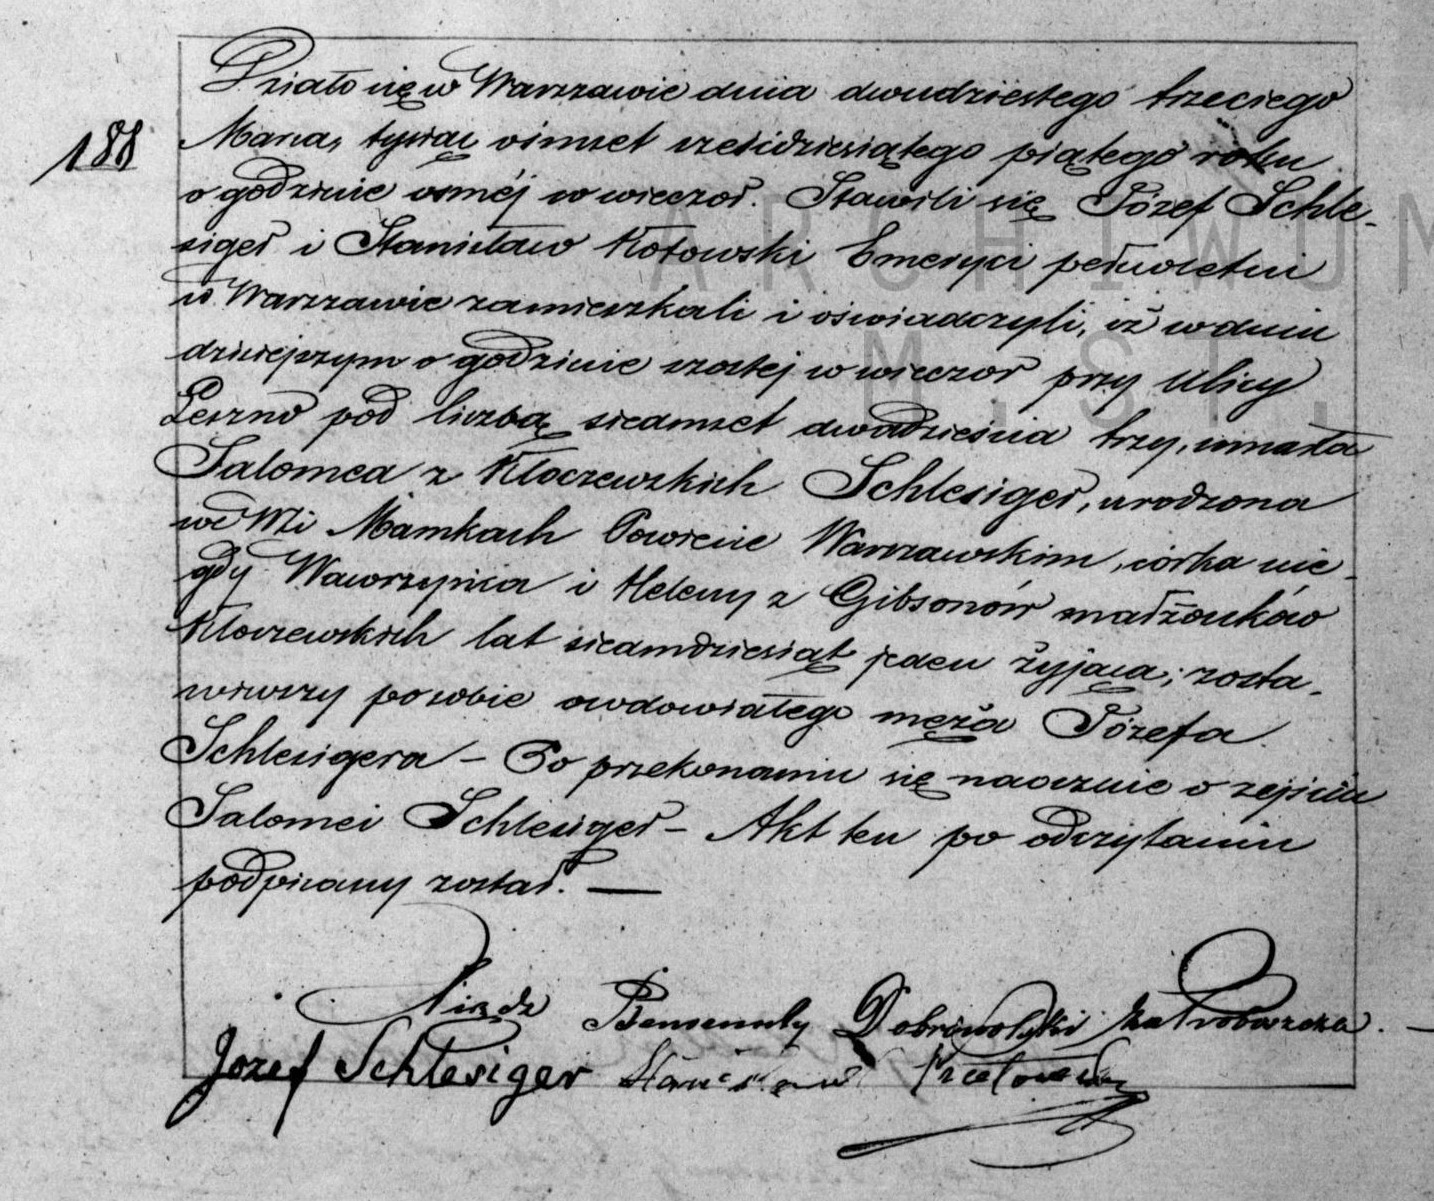 188
Działo się w Warszawie dnia dwudziestego trzeciego
Marca, tysiąc ośmset sześćdziesiątego piątego roku
o godzinie osméj w wieczor. Stawili się Józef Schle-
siger i Stanisław Kotowski Emeryci pełnoletni
w Warszawie zamieszkali i oświadczyli, iż w dniu
dzisiejszym o godzinie szostej w wieczor przy ulicy
Leszno pod liczbą siedmset dwadzieścia trzy, umarła
Salomea z Kłoczewskich Schlesiger, urodzona
we Wsi Mamkach Powiecie Warszawskim, córka nie-
gdy Wawrzyńca i Heleny z Gibsonów małżonków
Kłoczewskich lat siedmdziesiąt jeden żyjąca; zosta-
wiwszy po sobie owdowiałego męża Józefa
Schlesigera – Po przekonaniu się naocznie o zejściu
Salomei Schlesiger – Akt ten po odczytaniu
podpisany został. —
Ksiądz Dobrowolski
Jozef Schlesiger Stanisław
ARCHIWUM
M. ST.